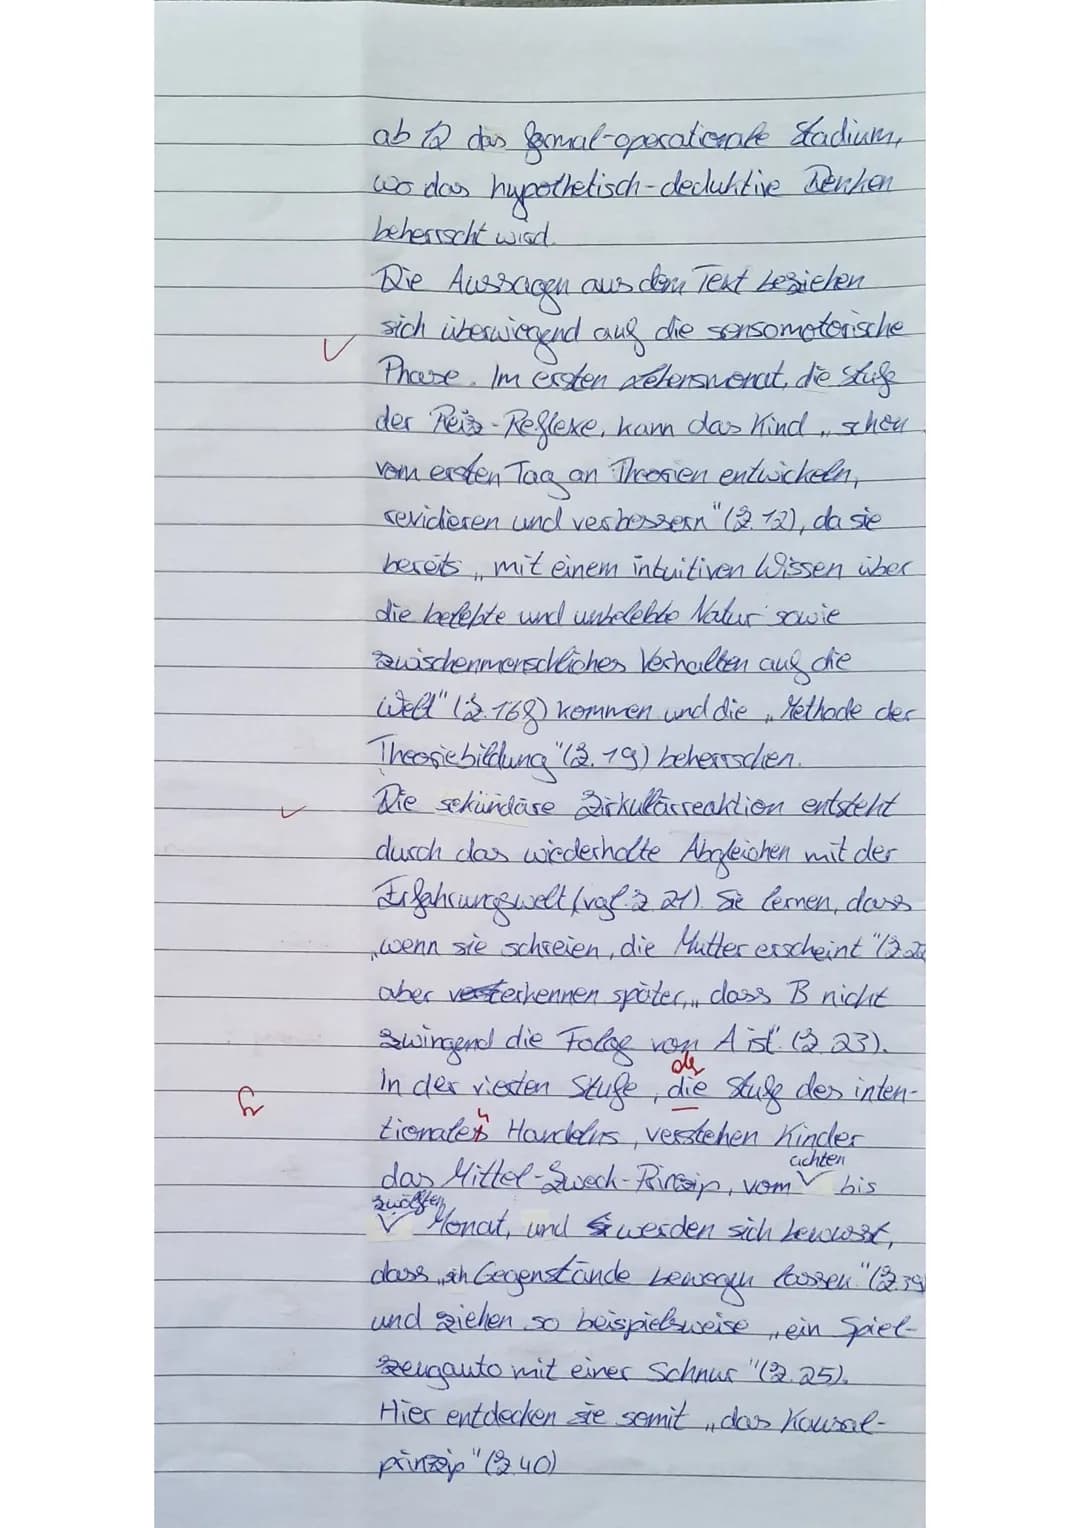 ab 12 das formal-operationale Stadium,
wo das hypothetisch-deduktive Denken
beherrscht wird.
Die Aussagen aus dem Text beziehen
sich überwiegend auf die sensomotorische
Phase. Im ersten Lebensmonat, die Stufe
der Reiz-Reflexe, kann das Kind „schon
vom ersten Tag an Theorien entwickeln,
revidieren und verbessern" (Z. 12), da sie
bereits „mit einem intuitiven Wissen über
die belebte und unbelebte Natur sowie
zwischenmenschliches Verhalten auf die
Welt" (Z. 16f) kommen und die „Methode der
Theoriebildung" (Z. 19) beherrschen.
Die sekundäre Zirkulärreaktion entsteht
durch das wiederholte Abgleichen mit der
Erfahrungswelt (vgl. Z 21). Sie lernen, dass
„wenn sie schreien, die Mutter erscheint" (Z
aber erkennen später, „dass B nicht
zwingend die Folge von A ist" (Z 23).
der
In der vierten Stufe, die Stufe des inten-
n
tionales Handelns, verstehen Kinder
achten
das Mittel-Zweck-Prinzip, vom V bis
zwölften
V Monat, und werden sich bewusst,
dass „sich Gegenstände bewegen lassen" (Z 39
und ziehen so beispielsweise „ein Spiel-
zeugauto mit einer Schnur" (Z. 25).
Hier entdecken sie somit „das Kausal-
prinzip" (Z 40)